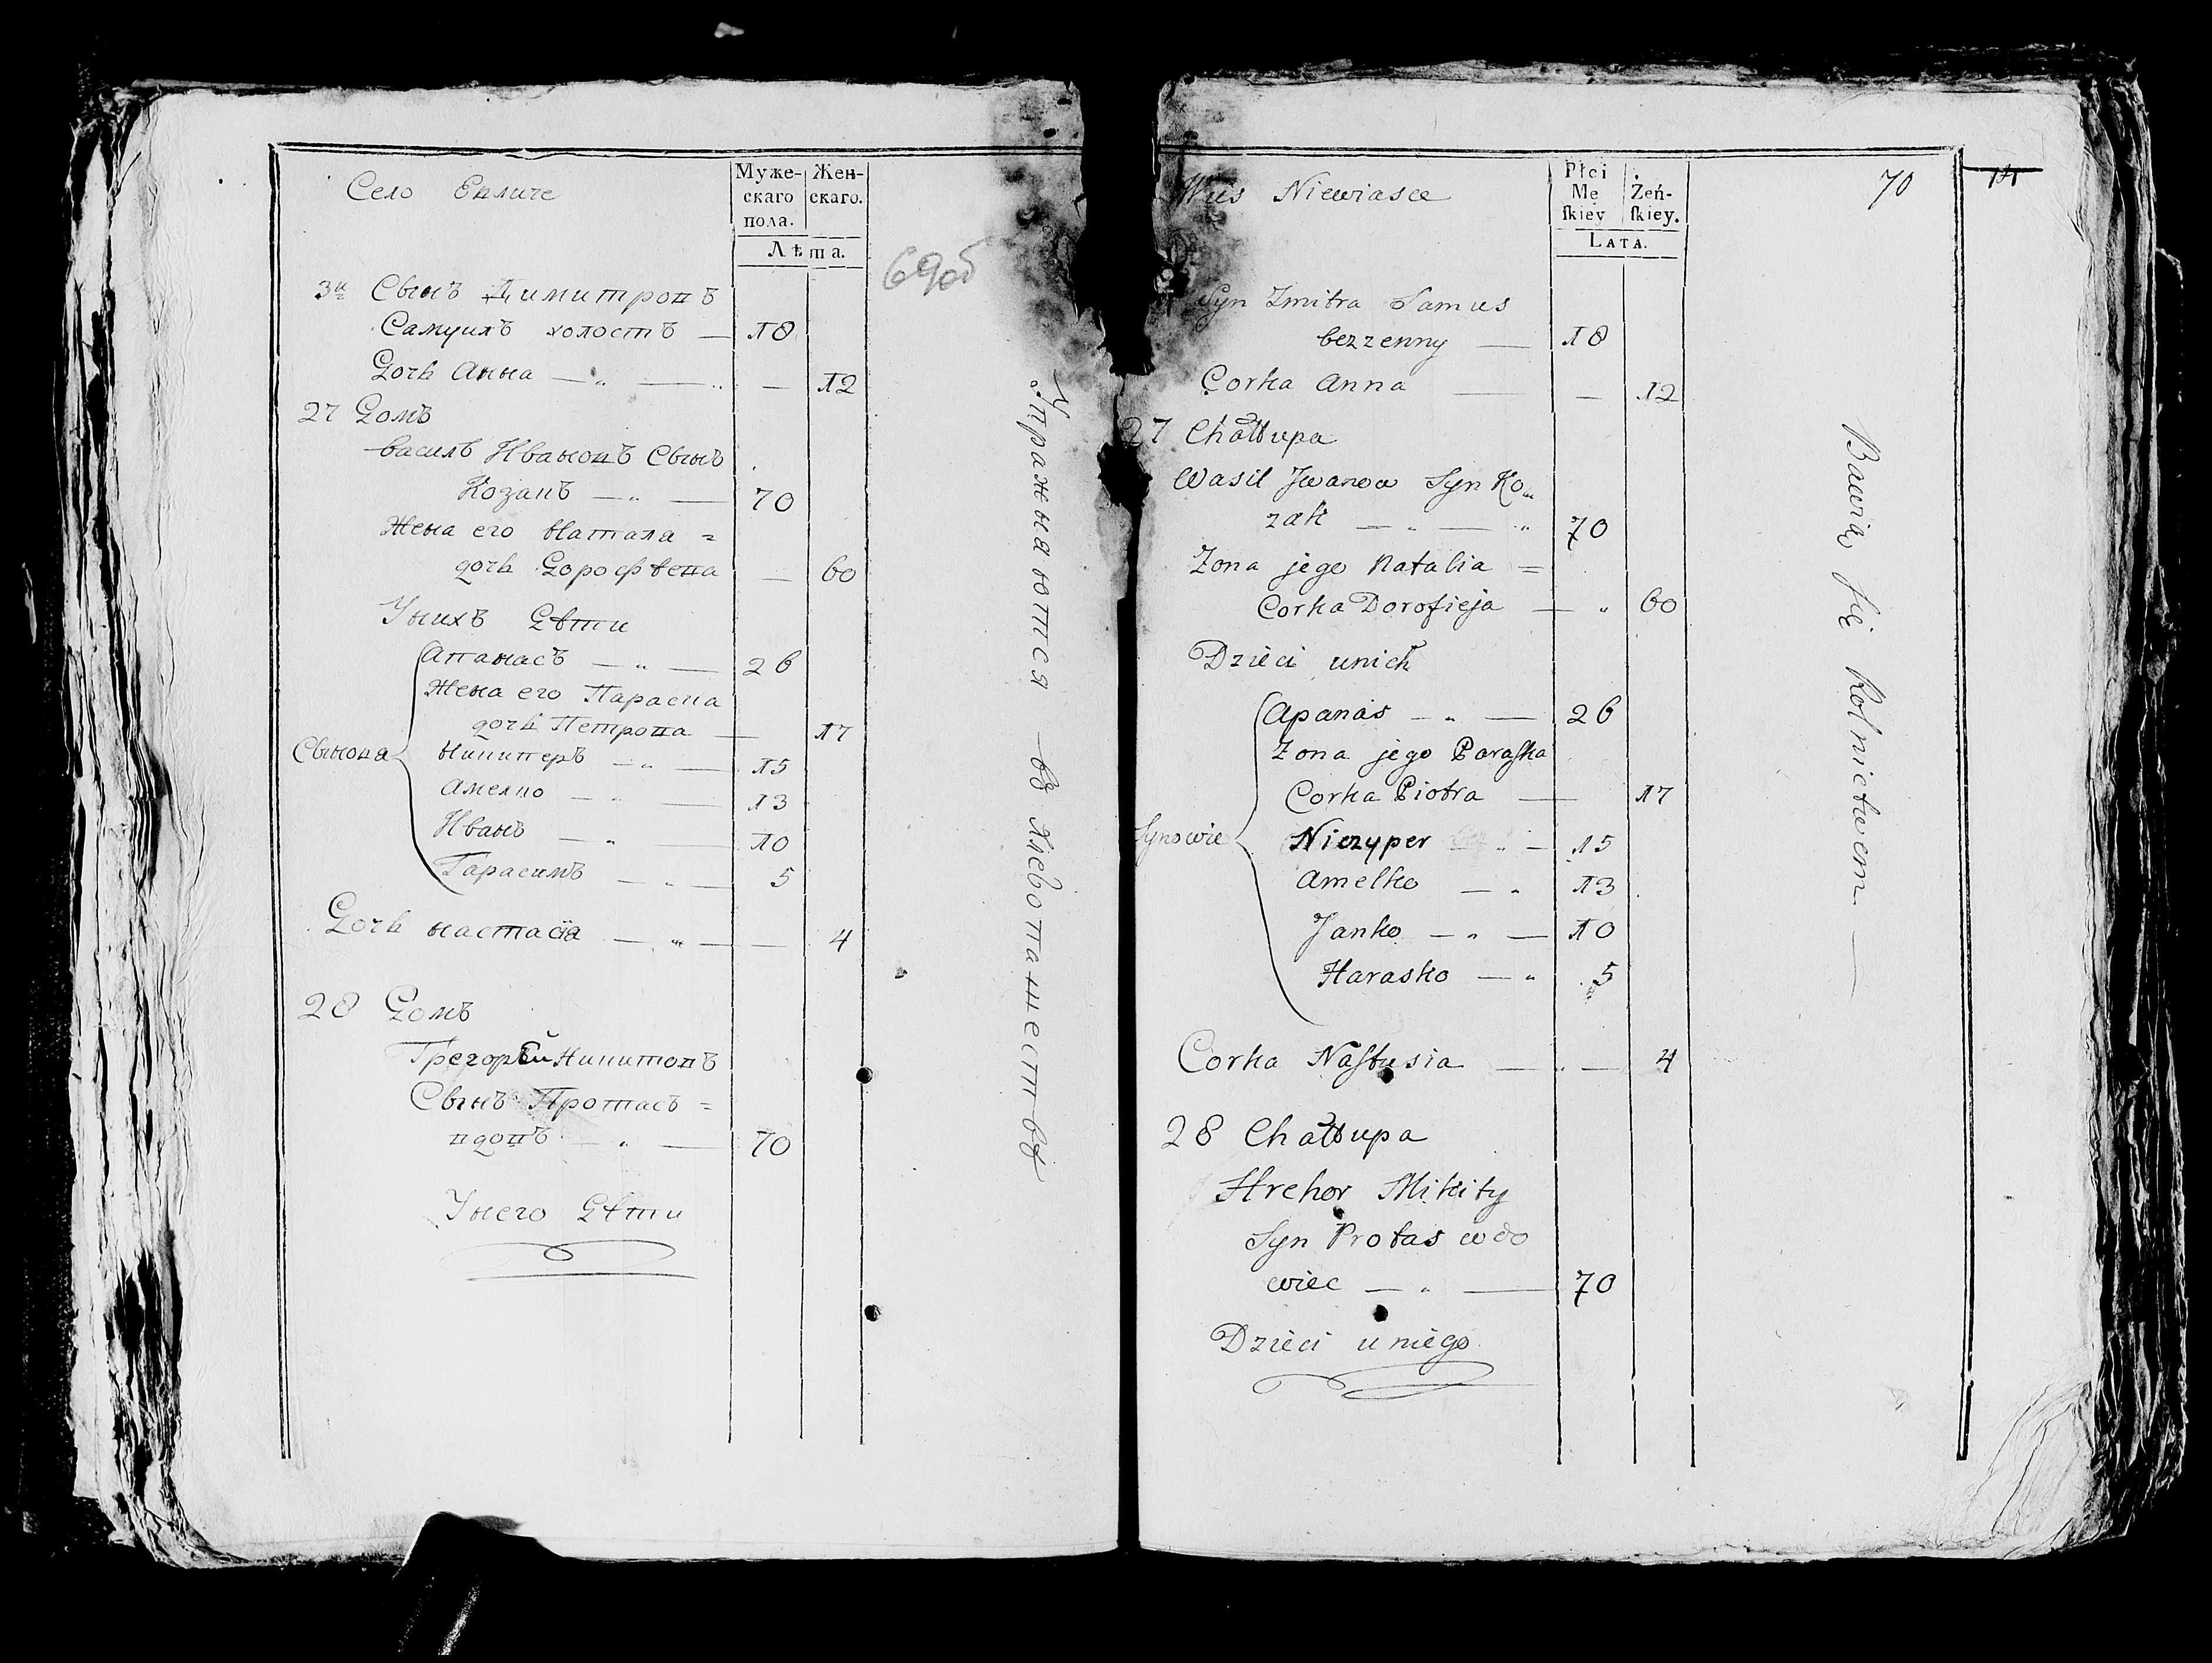 Село Еиличе
Муже- Жен-
скаго скаго.
пола.
Лѣта.
69об
3й Сынъ Димитровъ
Самуилъ холостъ — 18
Дочь Анна — „ — „ — 12
27 Домъ
василь Ивановъ Сынъ
Козакъ — „ — 70
Жена его Натала =
дочь Дорофѣева — 60
Унихъ Дѣти
Апанасъ — „ — 26
Жена его Параска
дочь Петрова — 17
Сынова
Никиперъ — „ — 15
Амелко — „ — 13
Иванъ — „ — 10
Гарасимъ — „ — 5
Дочь настасія — „ — — 4
28 Домъ
Грегорѣй Никитовъ
Сынъ Протасъ =
вдовъ — „ — 70
Унего Дѣти
Упражняются въ хлебопашествѣ
Wies Niewiasce
Płci
Mę Żeń-
ſkiey ſkiey.
LATA.
70
Syn Zmitra Samus
bezzenny — 18
Corka Anna — — 12
27 Chałłupa
Wasil Jwanow Syn Ko„
zak — „ — „ 70
Zona jego Natalia =
Corka Dorofieja — „ 60
Dzieci unich
Apanas — „ — 26
Zona jego Paraſka
Corka Piotra — 17
Synowie
Niczyper — „ — 15
Amelko — „ 13
Janko — „ — 10
Harasko — „ 5
Corka Naſtusia — . — 4
28 Chałłupa
Hrehor Mikity
Syn Protas wdo
wiec — „ — 70
Dzieci uniego
Bawią ſię Rolnictwem —